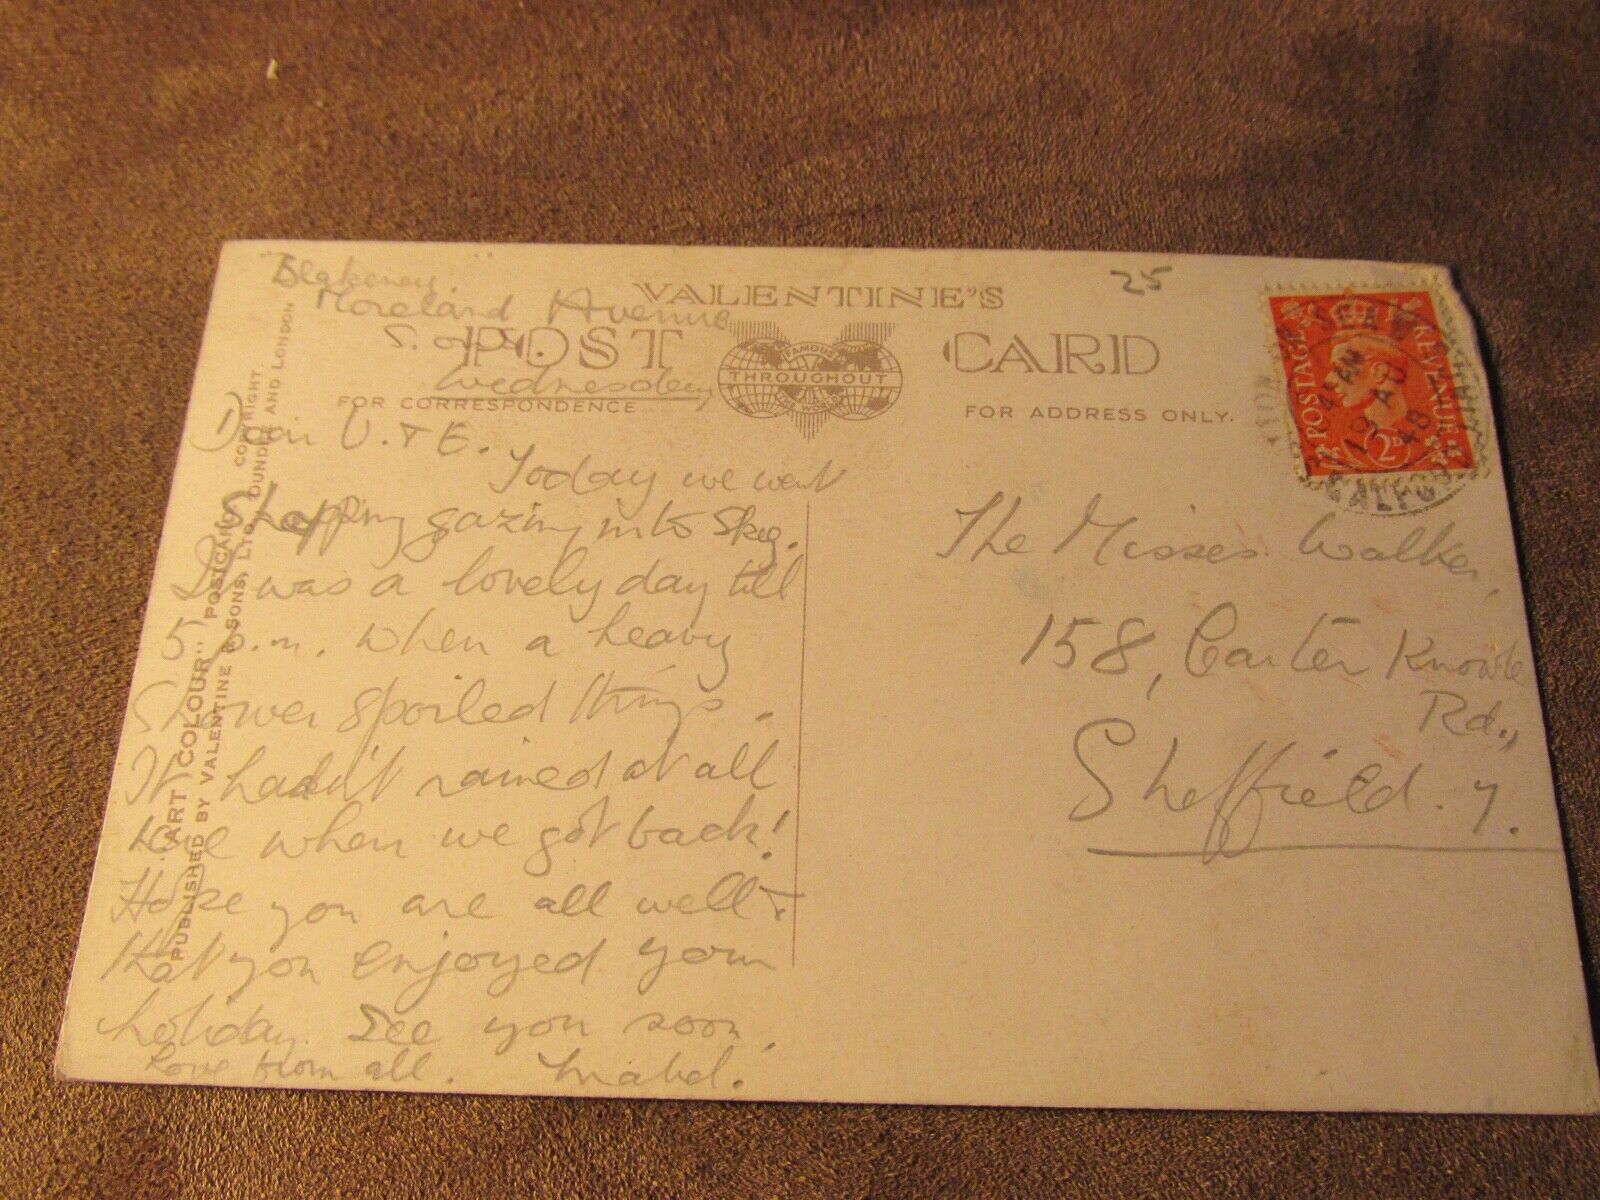 "Blakeney"
Moreland Avenue
S. on S.
Wednesday
Dear V. & E.
Today we went
shopping gazing into Skeg.
It was a lovely day till
5 p.m. when a heavy
shower spoiled things.
It hadn't rained at all
here when we got back!
Hope you are all well &
that you enjoyed your
holiday. See you soon.
Love from all. Mabel.
VALENTINE'S
POST CARD
FAMOUS
THROUGHOUT
THE WORLD
FOR CORRESPONDENCE
FOR ADDRESS ONLY.
25
POSTAGE REVENUE
2D
AM
19 AU
48
The Misses Walker,
158, Carter Knowle
Rd.,
Sheffield. 7.
"ART COLOUR" POSTCARD COPYRIGHT
PUBLISHED BY VALENTINE & SONS, LTD., DUNDEE AND LONDON